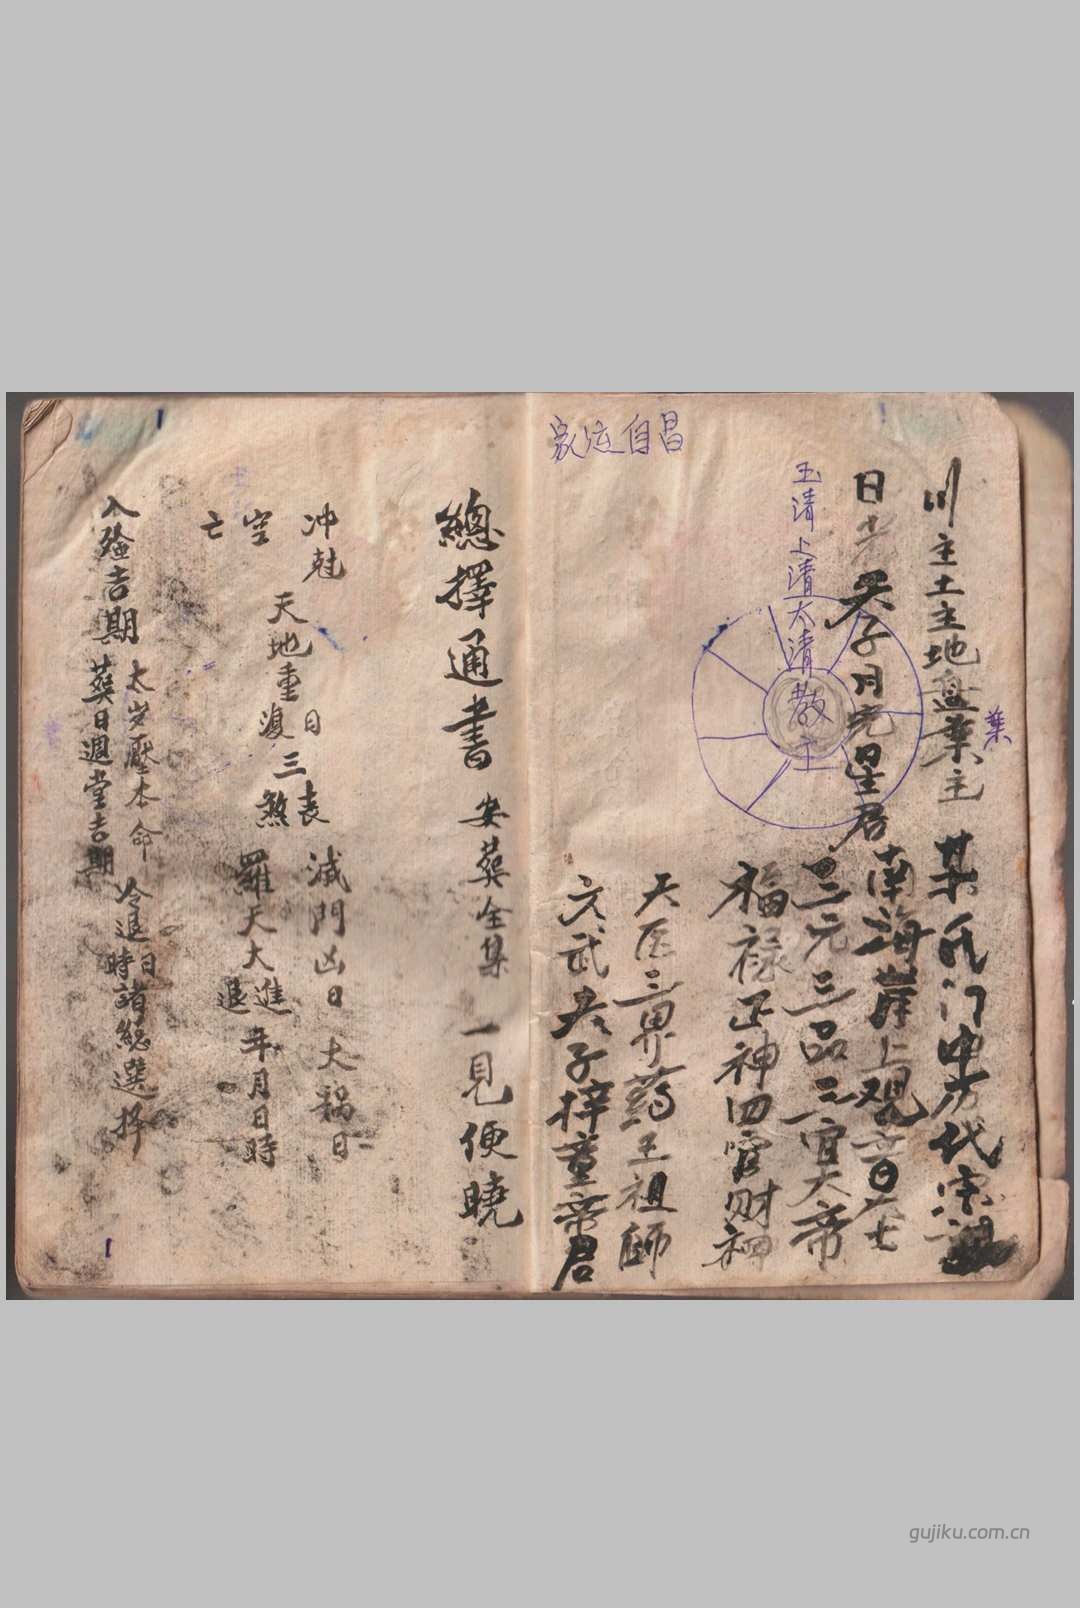 川主土主地盘葉主 某氏门中万代宗祖
葉
日光天子月光星君 南海岸上观音大士
玉清上清太清教主
三元三品三官大帝
福禄正神四官财神
天医三界药王祖師
文武夫子梓童帝君
家运自昌
總擇通書 安葬全集 一見便曉
冲尅
日
表
滅門凶日 大禍日
天地重復 三煞
空
羅天大進退年月日時
亡
太岁壓本命 冷退日時諸總選择
入殓吉期 葬日週堂吉期
gujiku.com.cn